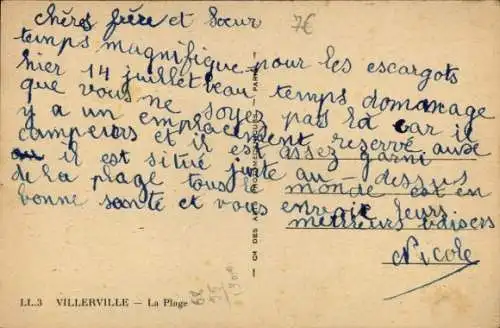 chères frère et Sœur
7€
temps magnifique pour les escargots
hier 14 juillet beau temps domanage
que vous ne soyez pas là car il
y a un emplacement reservé aux
campeurs et il est assez garni
il est situé juste au dessus
de la plage tous le monde est en
bonne sante et vous envoie leurs
meilleurs baisers
Nicole
LL.3 VILLERVILLE — La Plage